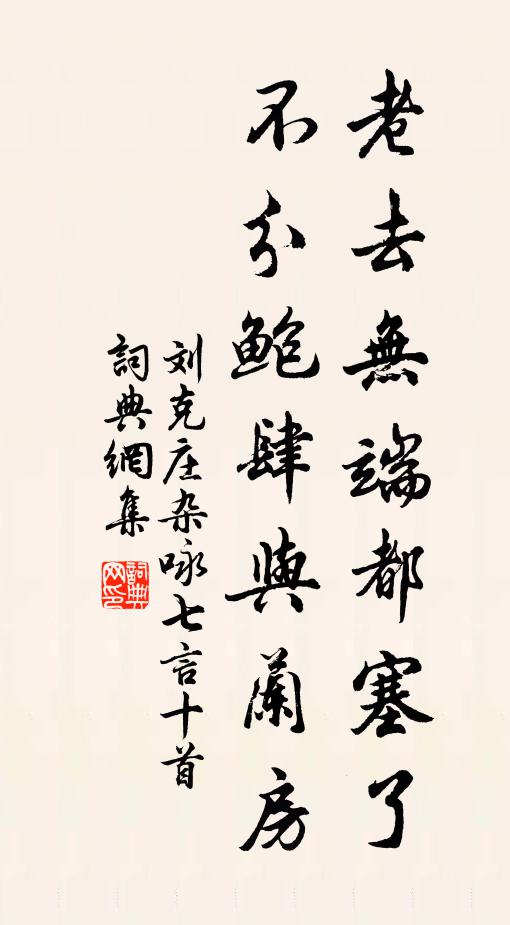 老去無端都塞了
不分鮑肆與蘭房
刘克庄杂咏七言十首
詞典網集
詞典网印